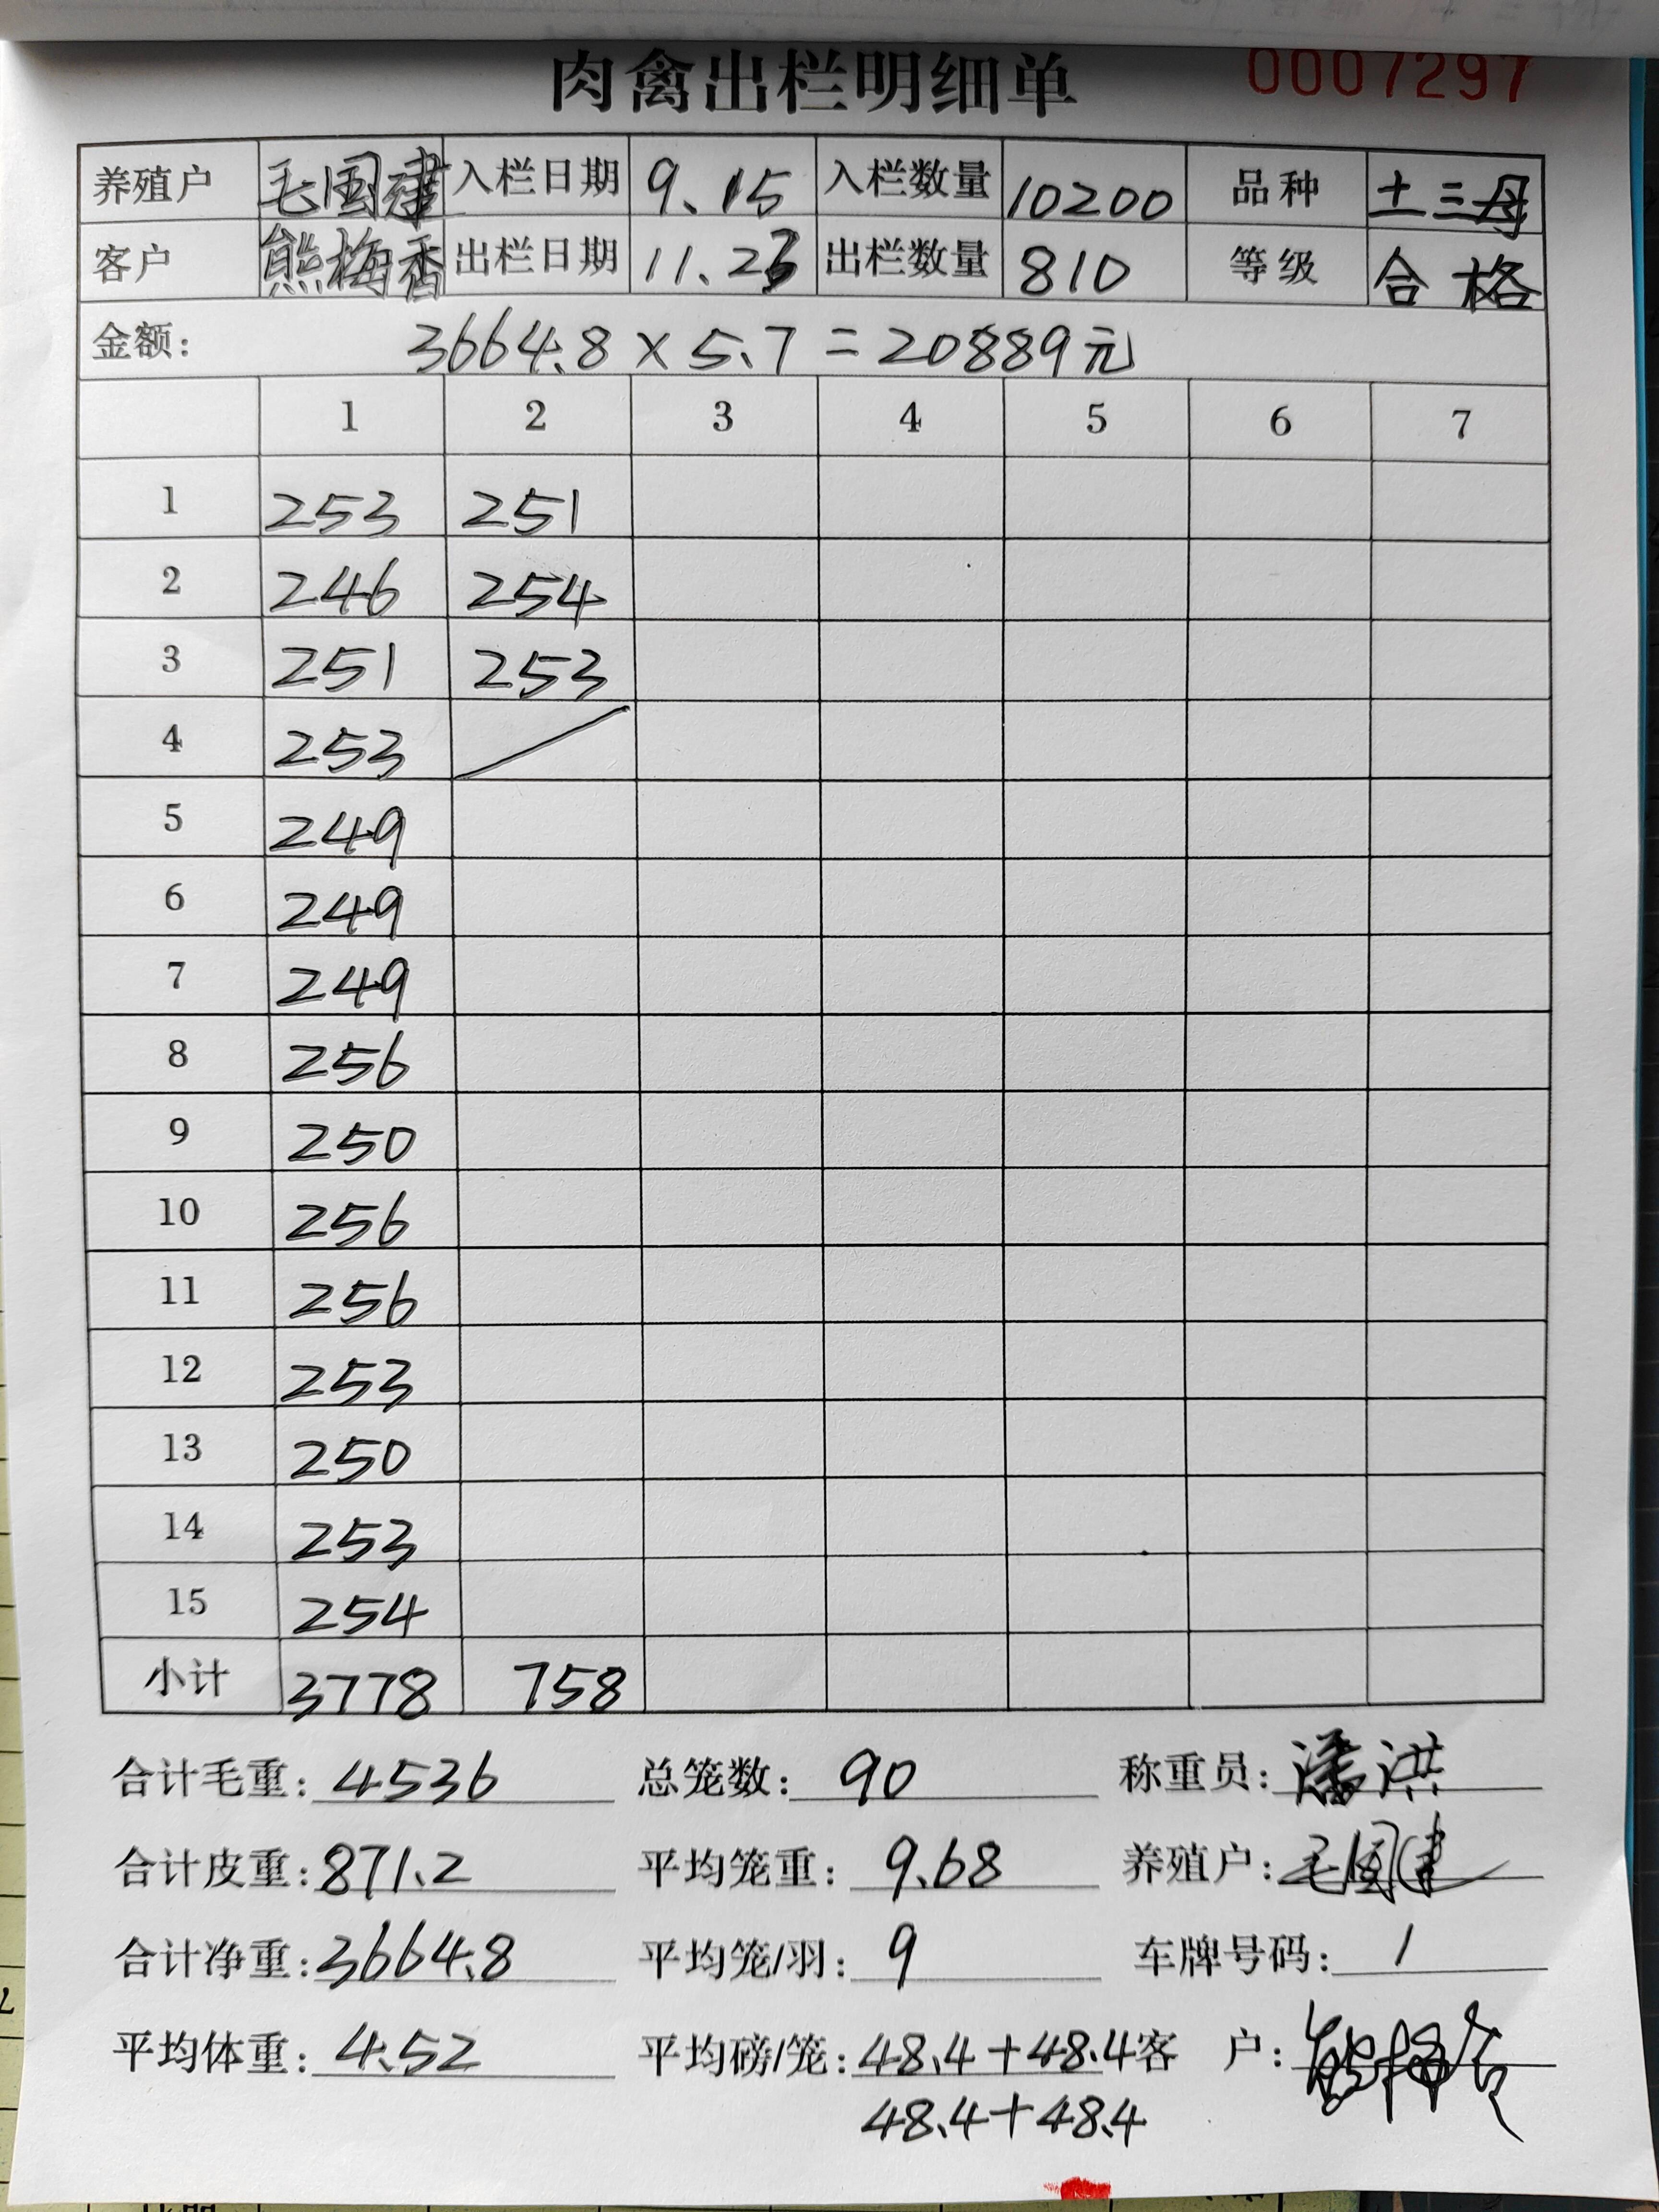 肉禽出栏明细单 0007297
养殖户 毛国建 入栏日期 9.15 入栏数量 10200 品种 土三母
客户 熊梅香 出栏日期 11.23 出栏数量 810 等级 合格
金额: 3664.8×5.7=20889元
1 2 3 4 5 6 7
1 253 251
2 246 254
3 251 253
4 253 /
5 249
6 249
7 249
8 256
9 250
10 256
11 256
12 253
13 250
14 253
15 254
小计 3778 758
合计毛重: 4536 总笼数: 90 称重员: 潘洪
合计皮重: 871.2 平均笼重: 9.68 养殖户: 毛国建
合计净重: 3664.8 平均笼/羽: 9 车牌号码: /
平均体重: 4.52 平均磅/笼: 48.4+48.4 客 户: 熊梅香
48.4+48.4